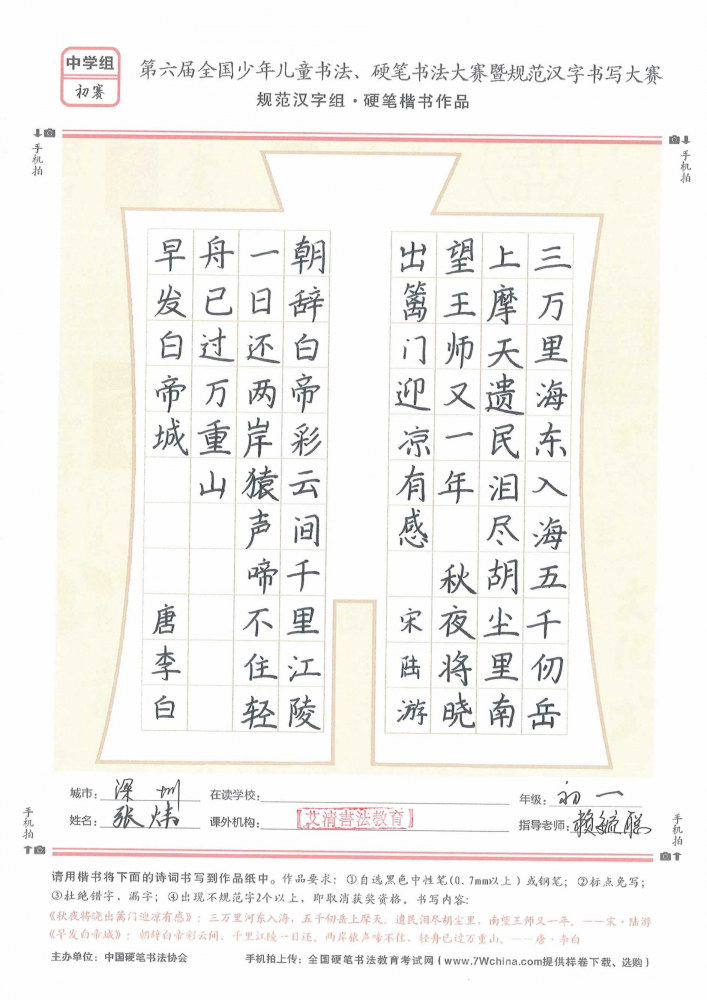 中学组
初赛
第六届全国少年儿童书法、硬笔书法大赛暨规范汉字书写大赛
规范汉字组·硬笔楷书作品
手机拍
手机拍
三万里海东入海五千仞岳
上摩天遗民泪尽胡尘里南
望王师又一年 秋夜将晓
出篱门迎凉有感 宋陆游
朝辞白帝彩云间千里江陵
一日还两岸猿声啼不住轻
舟已过万重山
早发白帝城 唐李白
城市：深圳 在读学校： 年级：初一
姓名：张炜 课外机构：艾清书法教育 指导老师：赖毓聪
手机拍
手机拍
请用楷书将下面的诗词书写到作品纸中。作品要求：①自选黑色中性笔(0.7mm以上)或钢笔；②标点免写；
③杜绝错字、漏字；④出现不规范字2个以上，即取消获奖资格。书写内容：
《秋夜将晓出篱门迎凉有感》：三万里河东入海，五千仞岳上摩天。遗民泪尽胡尘里，南望王师又一年。——宋·陆游
《早发白帝城》：朝辞白帝彩云间，千里江陵一日还。两岸猿声啼不住，轻舟已过万重山。——唐·李白
主办单位：中国硬笔书法协会 手机拍上传：全国硬笔书法教育考试网(www.7Wchina.com提供样卷下载、选购)